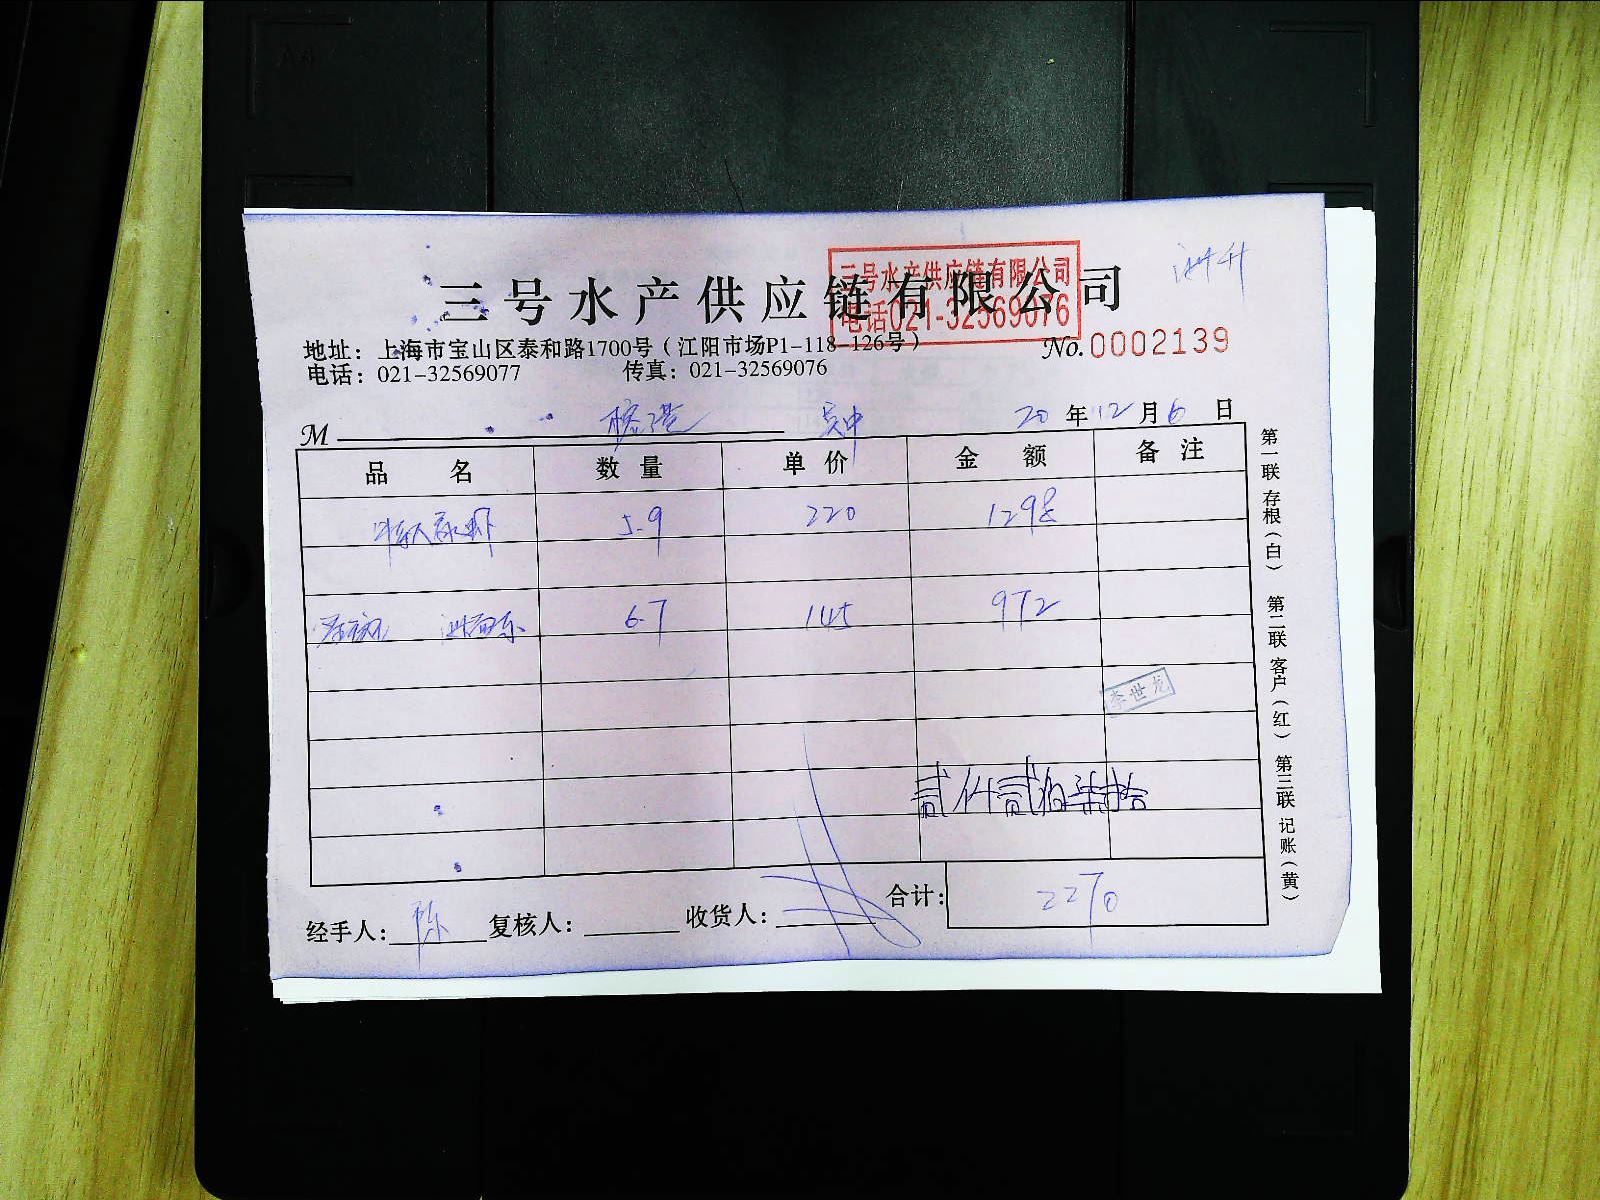 三号水产供应链有限公司
三号水产供应链有限公司
电话021-32569076
地址：上海市宝山区泰和路1700号（江阳市场P1-118-126号）
No.0002139
电话：021-32569077 传真：021-32569076
M 20 年 12 月 6 日
品 名 数 量 单 价 金 额 备 注
5.9 220 1298
6.7 145 972
李世龙
贰仟贰佰柒拾
合计：2270
经手人：陈 复核人： 收货人：
第一联 存根（白） 第二联 客户（红） 第三联 记账（黄）